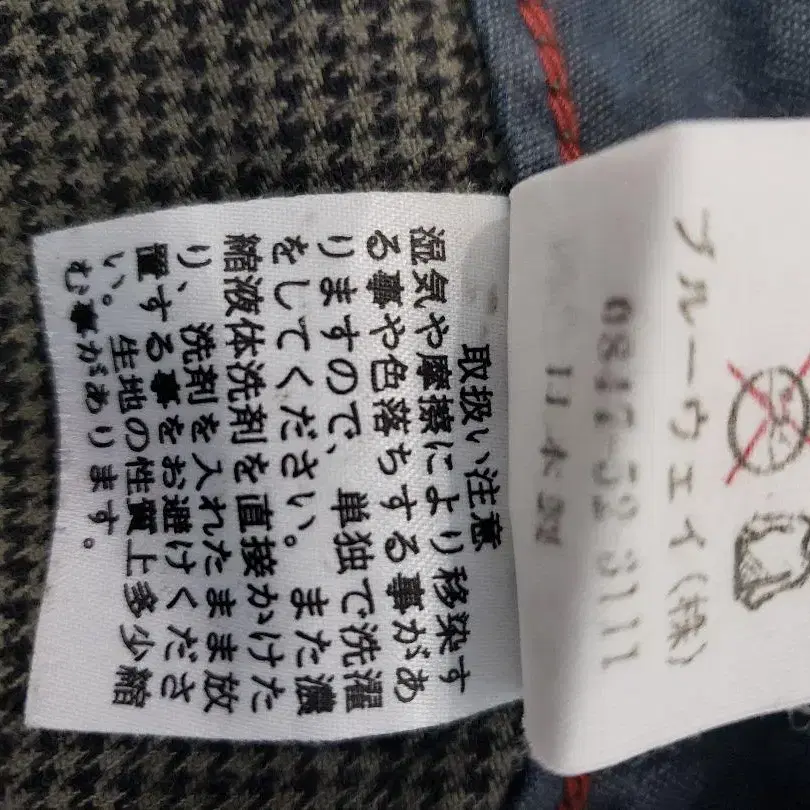 取扱い注意
湿気や摩擦により移染す
る事や色落ちする事があ
りますので、単独で洗濯
をしてください。また濃
縮液体洗剤を直接かけた
り、洗剤を入れたまま放
置する事をお避けくださ
い。生地の性質上多少縮
む事があります。
ブルーウェイ(株)
0847-52-3111
日本製